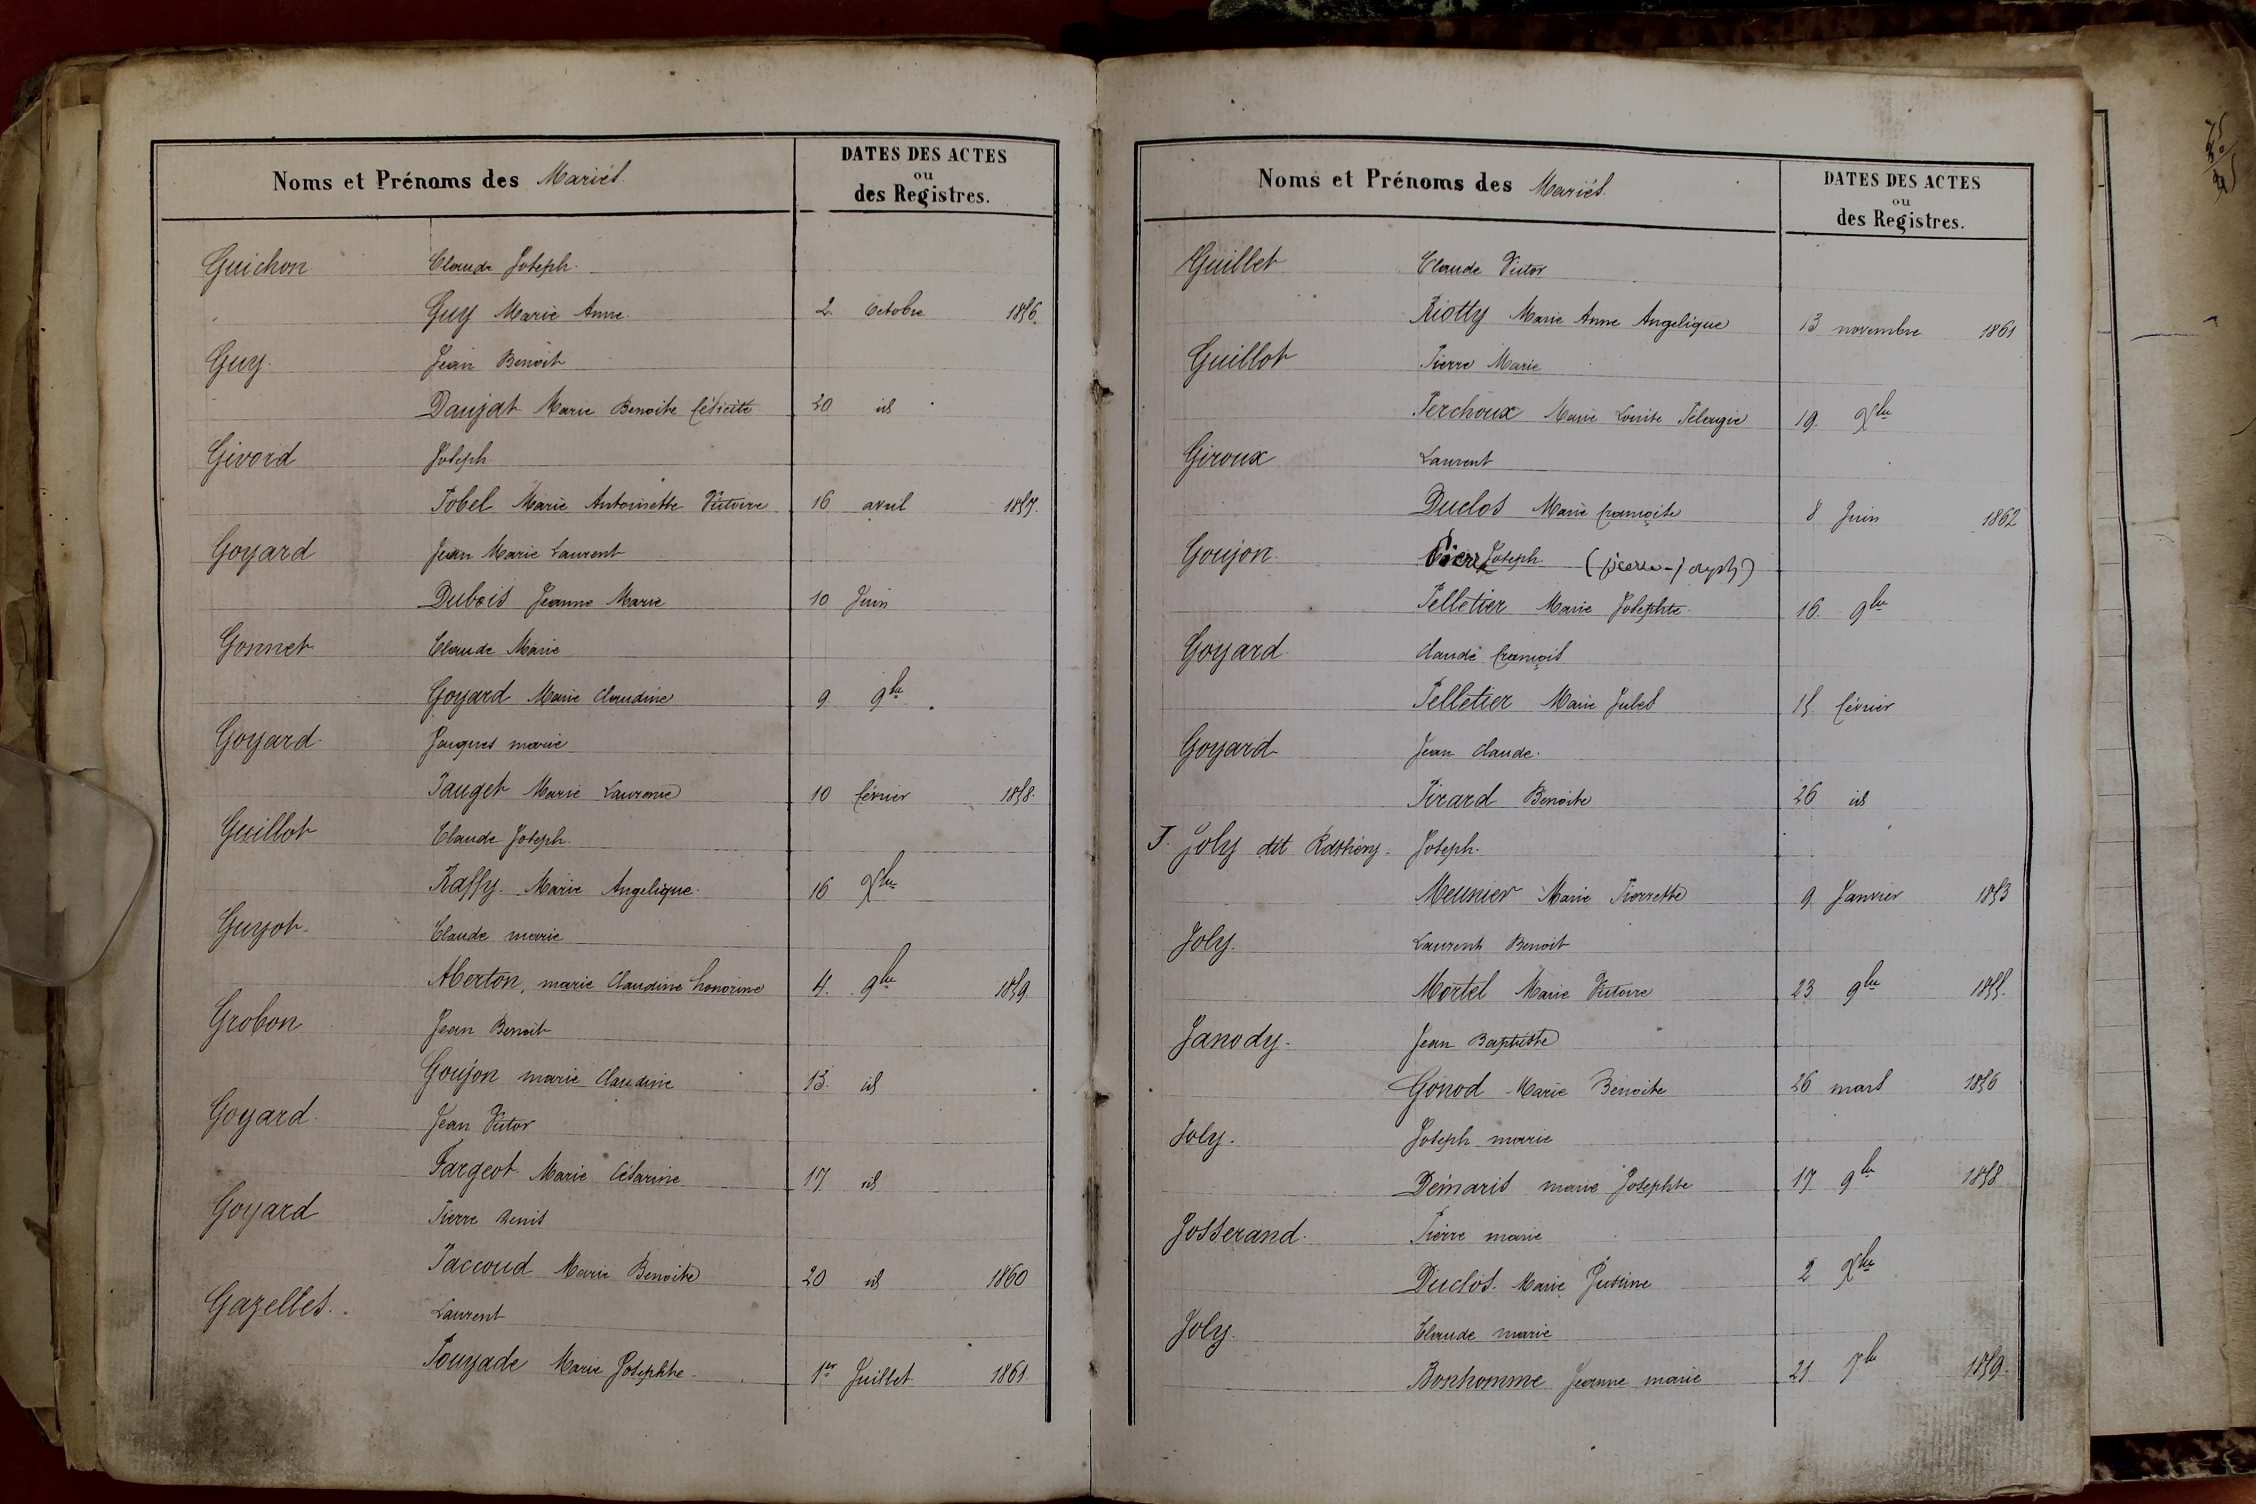 Noms et Prénoms des Mariés.
DATES DES ACTES
ou
des Registres.
Guichon Claude Joseph.
Guy Marie Anne. 2 octobre 1856.
Guy. Jean Benoît
Daujat Marie Benoite félicité 20 id
Givord Joseph
Pobel Marie Antoinette Victoire 16 avril 1857.
Goyard Jean Marie Laurent
Dubois Jeanne Marie 10 Juin
Gonnet Claude Marie
Goyard Marie Claudine 9 9bre
Goyard. Jacques marie
Pauget Marie Laurence 10 février 1858.
Guillot Claude Joseph.
Raffy. Marie Angelique. 16 Xbre
Guyot. Claude marie
Aberton, marie Claudine honorine 4. 9bre 1859
Grobon Jean Benoit
Goujon marie Claudine 13. id
Goyard. Jean Victor
Fargeot Marie Césarine 17 id
Goyard Pierre denis
Paccoud Marie Benoite 20 id 1860
Gazelles. Laurent
Pouyade Marie Josephte. 1er Juillet 1861
Noms et Prénoms des Mariés.
DATES DES ACTES
ou
des Registres.
Guillet Claude Victor
Riotty Marie Anne Angelique 13 novembre 1861
Guillot Pierre Marie
Perchoux Marie Louise Pélagie 19. Xbre
Giroux Laurent
Duclos Marie françoise 8 Juin 1862
Goujon. Pierre Joseph. (pierre-joseph)
Pelletier Marie Josephte. 16. 9bre
Goyard. Claude françois
Pelletier Marie Jules 15 février
Goyard Jean Claude.
Pirard Benoite 26 id
J. Joly dit Joseph.
Meunier Marie Pierrette 9 Janvier 1853
Joly. Laurent Benoit
Mortel Marie Victoire 23 9bre 1855.
Janody. Jean Baptiste
Gonod Marie Benoite 26 mars 1856
Joly. Joseph marie
Démaris marie Josephte 17 9bre 1858
Josserand. Pierre marie
Duclos. Marie Justine 2 Xbre
Joly. Claude marie
Bonhomme Jeanne marie 21 7bre 1859.